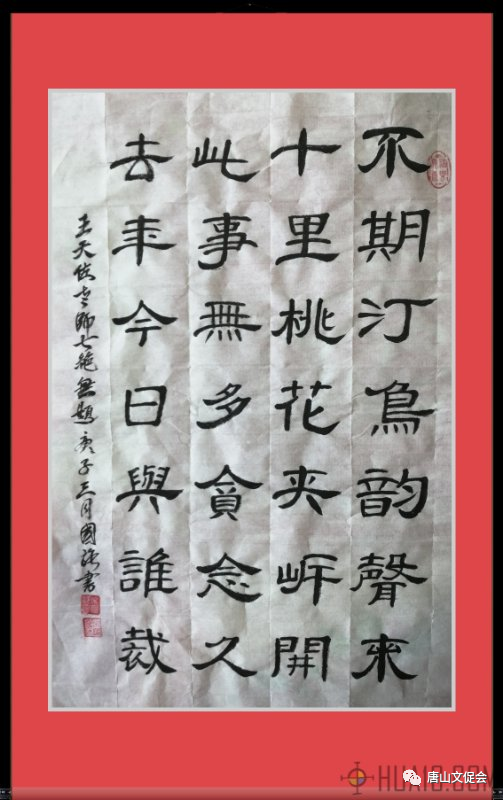 不期汀鳥韵聲来
十里桃花夹岍開
此事無多貪念久
去年今日與誰裁
王天老师七绝無題 庚子三月國書
HUA16.COM
唐山文促会